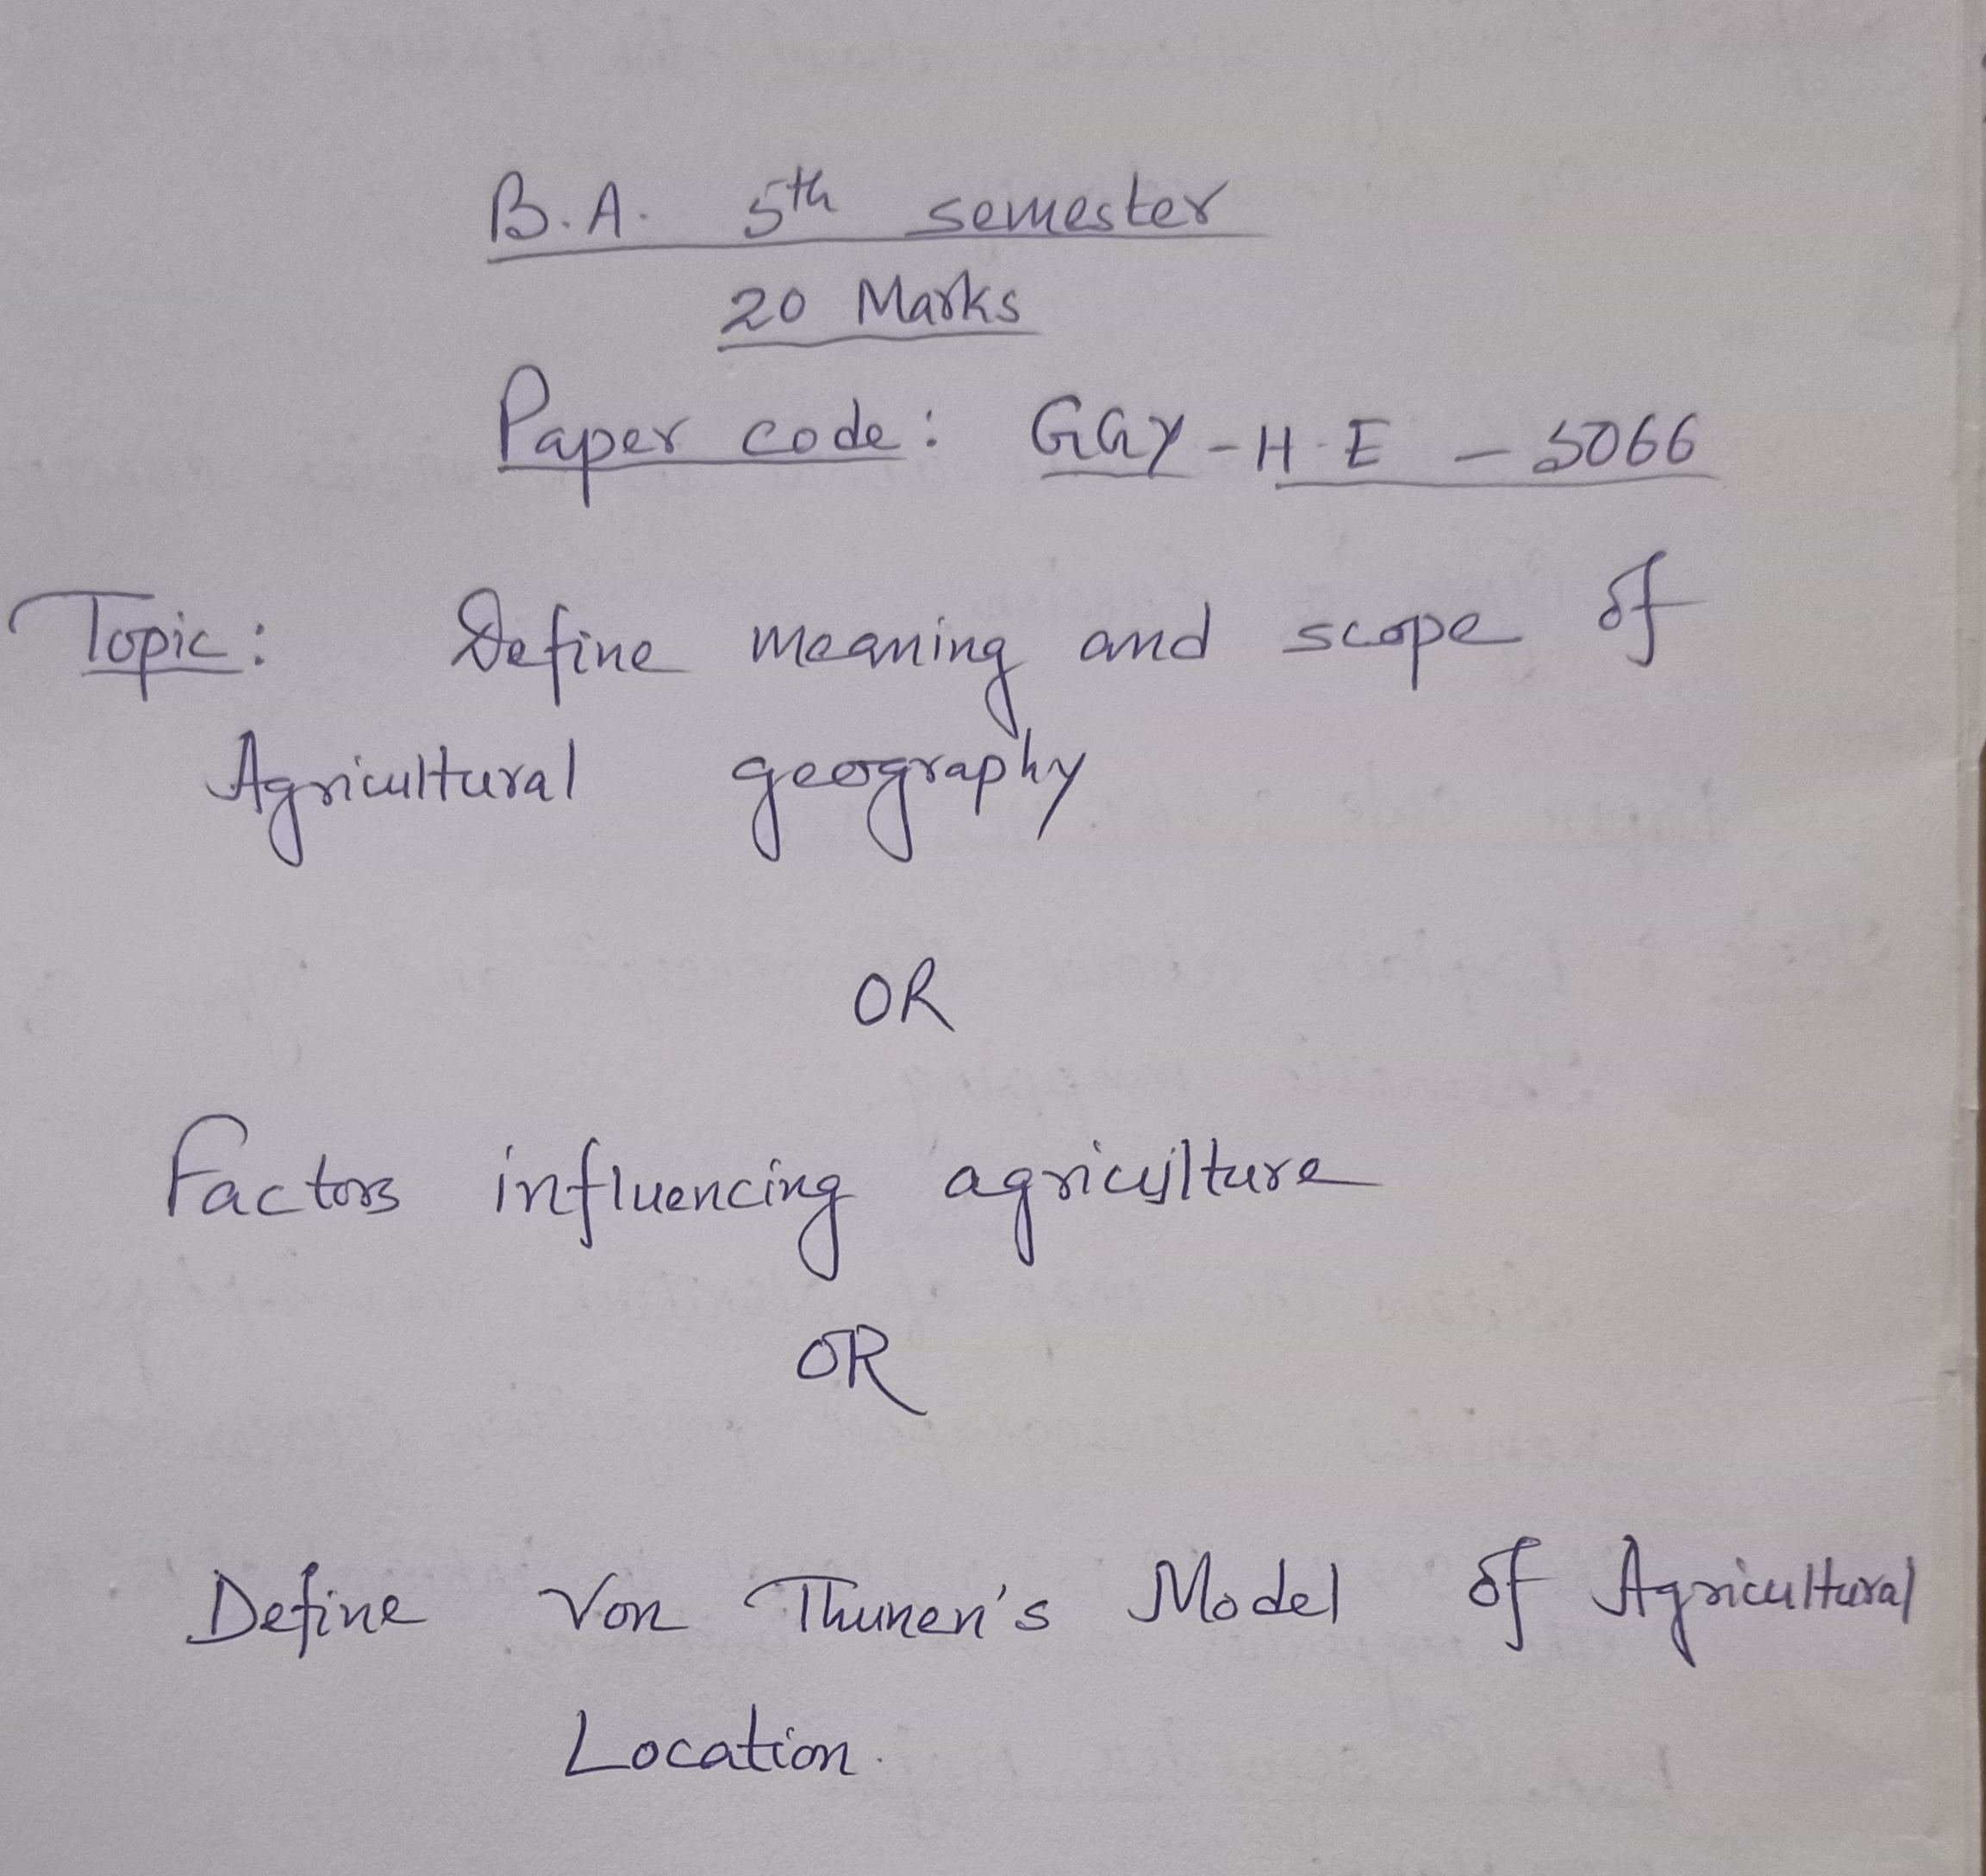 B.A. 5th semester
20 Marks
Paper code: GGY-H-E-5066
Topic: Define meaning and scope of
Agricultural geography
OR
Factors influencing agriculture
OR
Define Von Thunen's Model of Agricultural
Location.